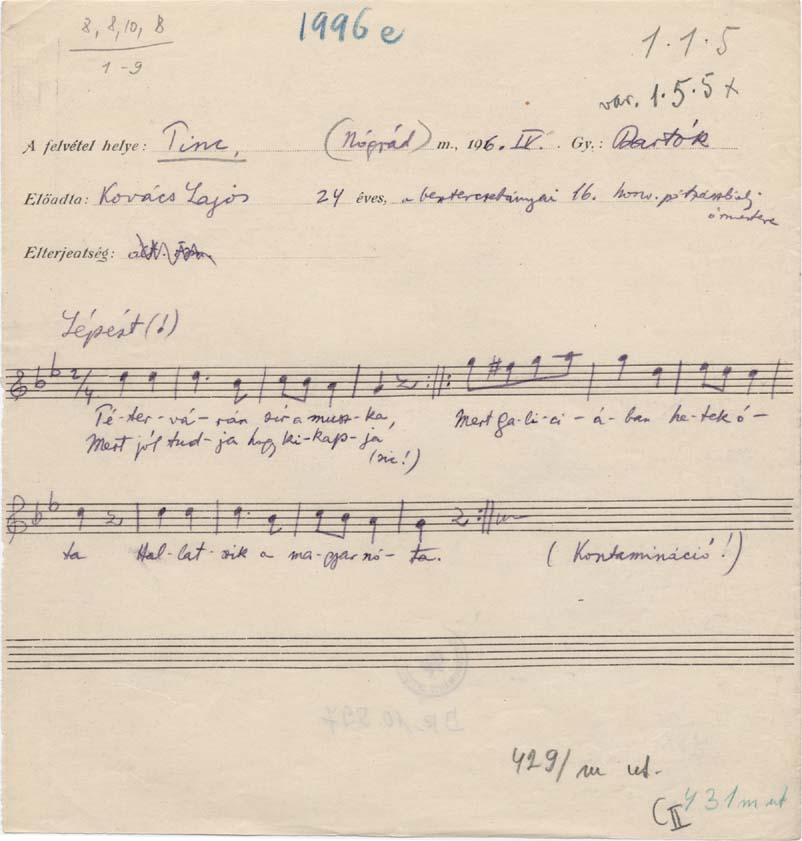 8, 8, 10, 8
1-9
1996 e
1.1.5
var. 1.5.5 +
A felvétel helye: Tinc, (Nógrád) m., 196. IV. Gy.: Bartók
Előadta: Kovács Lajos 24 éves, a besztercebányai 16. honv. pótzászlóalj
őrmestere
Elterjedtség:
Lépést (!)
2/4
Pé-ter-vá-rán sír a musz-ka, Mert ga-li-ci-á-ban he-tek ó-
Mert jól tud-ja hogy ki-kap-ja
(sic!)
ta Hal-lat-szik a ma-gyar nó-ta. (Kontamináció!)
BR. 10.897
429/ m ut.
C II 431 m ut